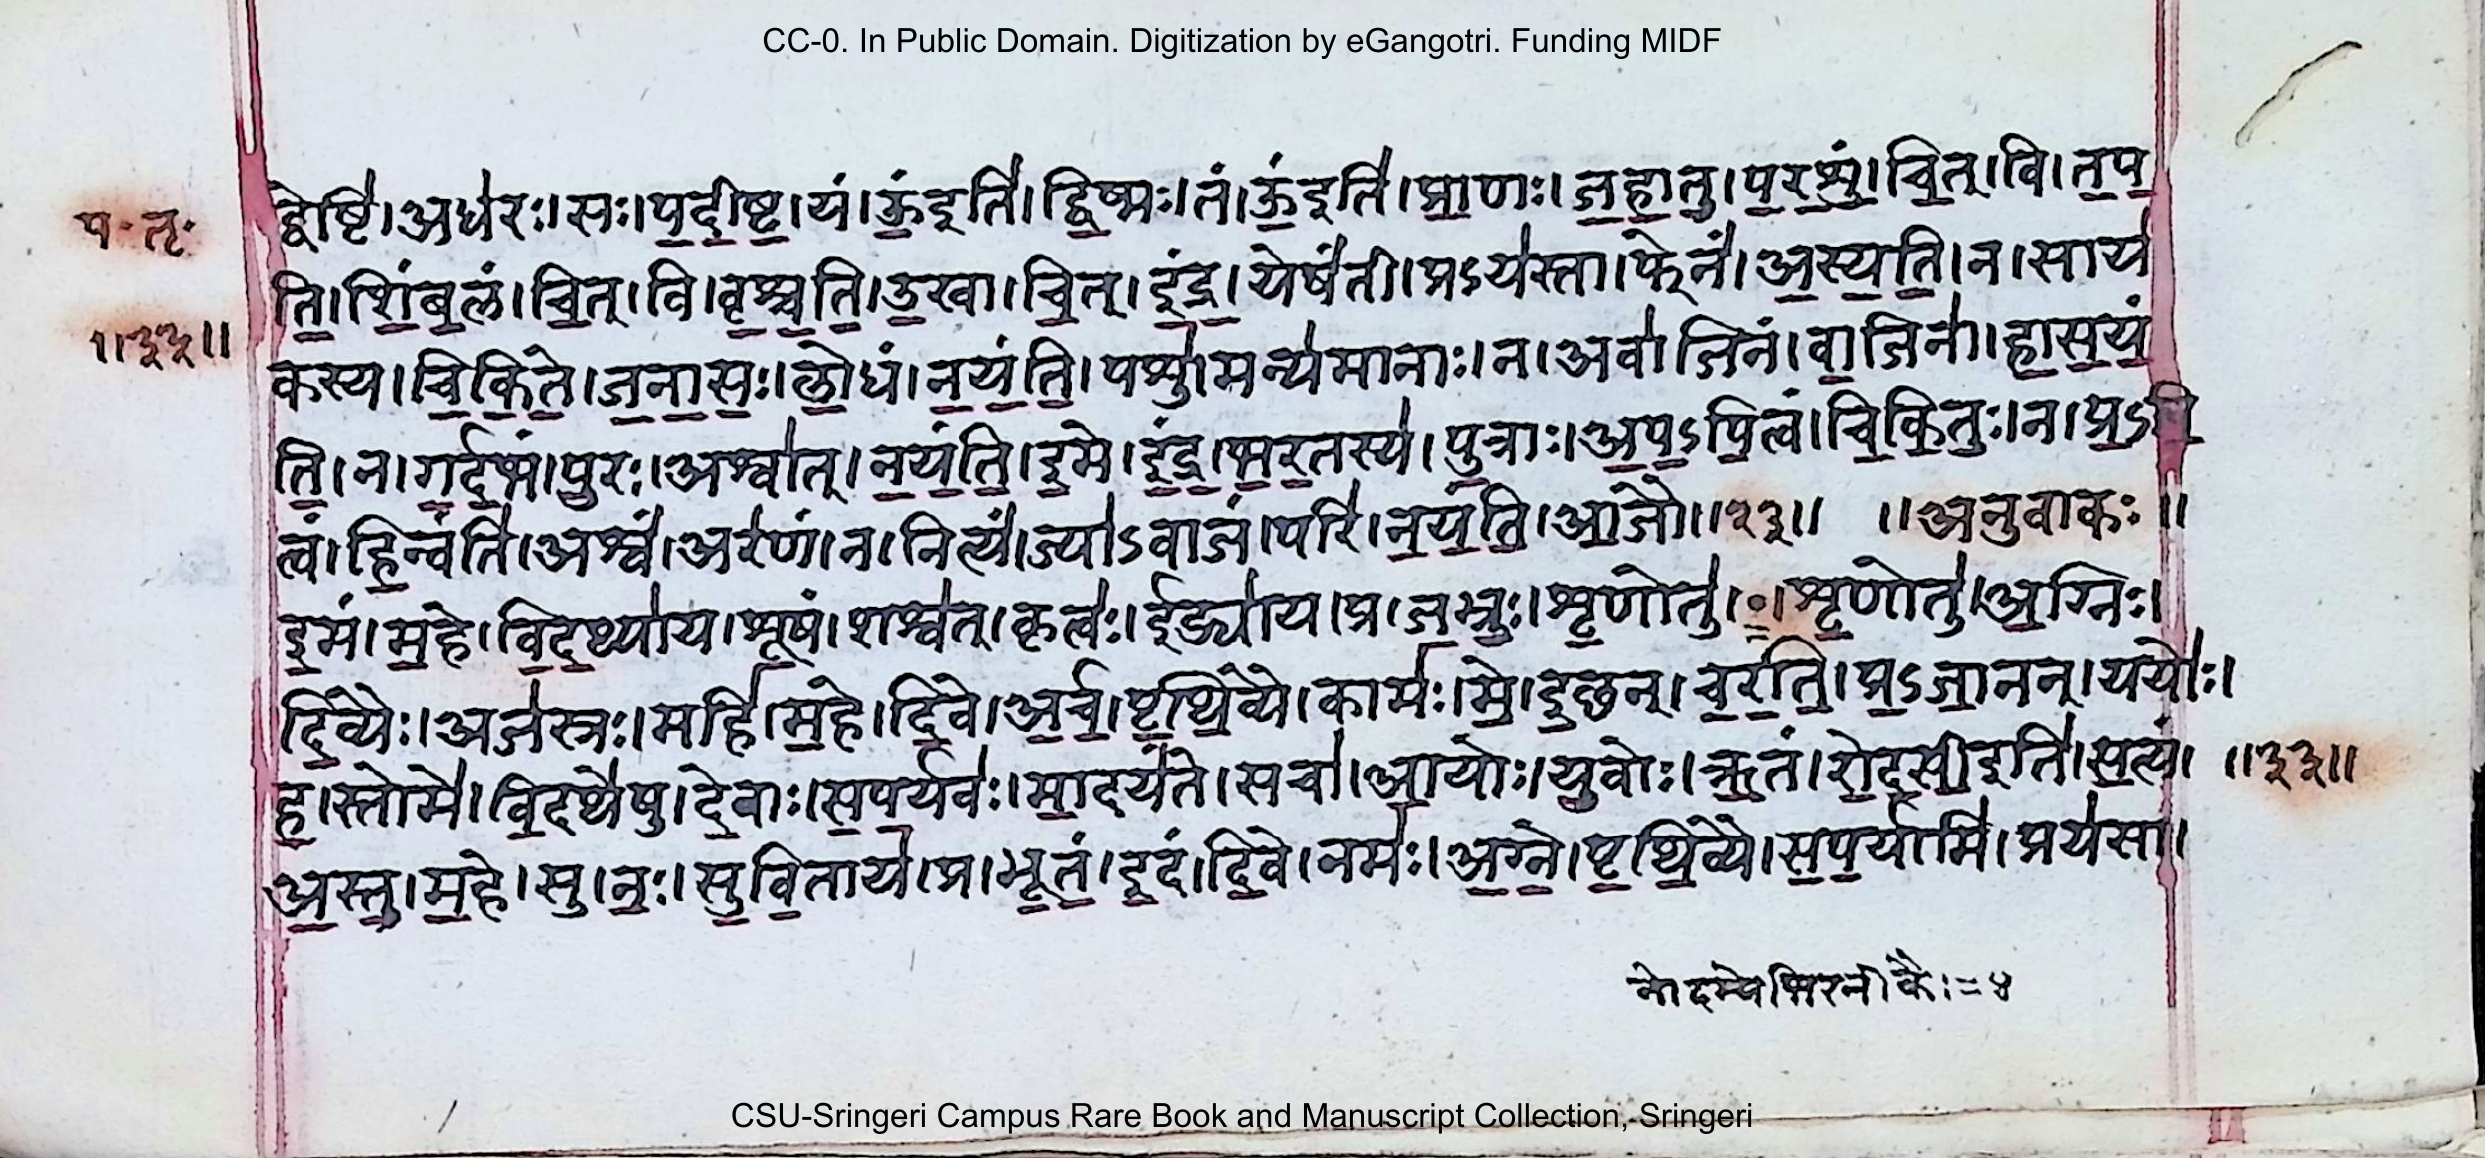 CC-0. In Public Domain. Digitization by eGangotri. Funding MIDF
द्वेष्टि॑।अध॑रः।सः।प॒दी॒ष्ट॒।यं।ऊं॒इति॑।द्वि॒ष्मः।तं।ऊं॒इति॑।प्रा॒णः।ज॒हा॒तु॒।प॒र॒शुं।चि॒त्।वि।त॒प॒
प॰ तृ॰
ति॒।शिं॒ब॒लं।चि॒त्।वि।वृ॒श्च॒ति॒।उ॒खा।चि॒त्।इं॒द्र॒।येषं॑ती।प्रऽय॑स्ता।फेनं॑।अ॒स्य॒ति॒।न।साय॑
॥३२॥
कस्य।चि॒कि॒ते॒।ज॒ना॒सः॒।लो॒धं।न॒यं॒ति॒।पशु॑।मन्य॑मानाः।न।अवा॑जिनं।वा॒जिना॑।हा॒स॒यं॒
ति॒।न।ग॒र्द॒भं।पु॒रः।अश्वा॑त्।न॒यं॒ति॒।इ॒मे।इं॒द्र॒।भ॒र॒तस्य॑।पु॒त्राः।अ॒प॒ऽपि॒त्वं।चि॒कि॒तुः॒।न।प्र॒ऽपि॒
त्वं।हि॒न्वंति॑।अश्वं॑।अर॑णं।न।नित्यं॑।ज्या॑ऽवाजं।परि॑।न॒यं॒ति॒।आ॒जौ॥२३॥ ॥अनुवाकः॥
इ॒मं।म॒हे।वि॒द॒थ्या॑य।शू॒षं।शश्व॑त्।कृत्वः॑।ईड्या॑य।प्र।ज॒भ्रुः॒।शृ॒णोतु॑।॰।शृ॒णोतु॑।अ॒ग्निः।
दि॒व्यैः।अज॑स्त्रः।महि॑।म॒हे।दि॒वे।अ॒र्च॒।पृ॒थि॒व्ये।कामः॑।मे॒।इ॒छन्।च॒र॒ति॒।प्र॒ऽजा॒नन्।ययोः॑।
ह॒।स्तोमे॑।वि॒दथे॑षु।दे॒वाः।स॒प॒र्यवः॑।मा॒दयं॑ते।सचा॑।आ॒योः।यु॒वोः।ऋ॒तं।रो॒द॒सी॒इति॑।स॒त्यं।
॥३३॥
अ॒स्तु॒।म॒हे।सु।नः॒।सु॒वि॒ताय॑।प्र।भू॒तं॒।इ॒दं।दि॒वे।नमः॑।अ॒ग्ने॒।पृ॒थि॒व्यै।स॒प॒र्यामि॑।प्रय॑सा।
CSU-Sringeri Campus Rare Book and Manuscript Collection, Sringeri